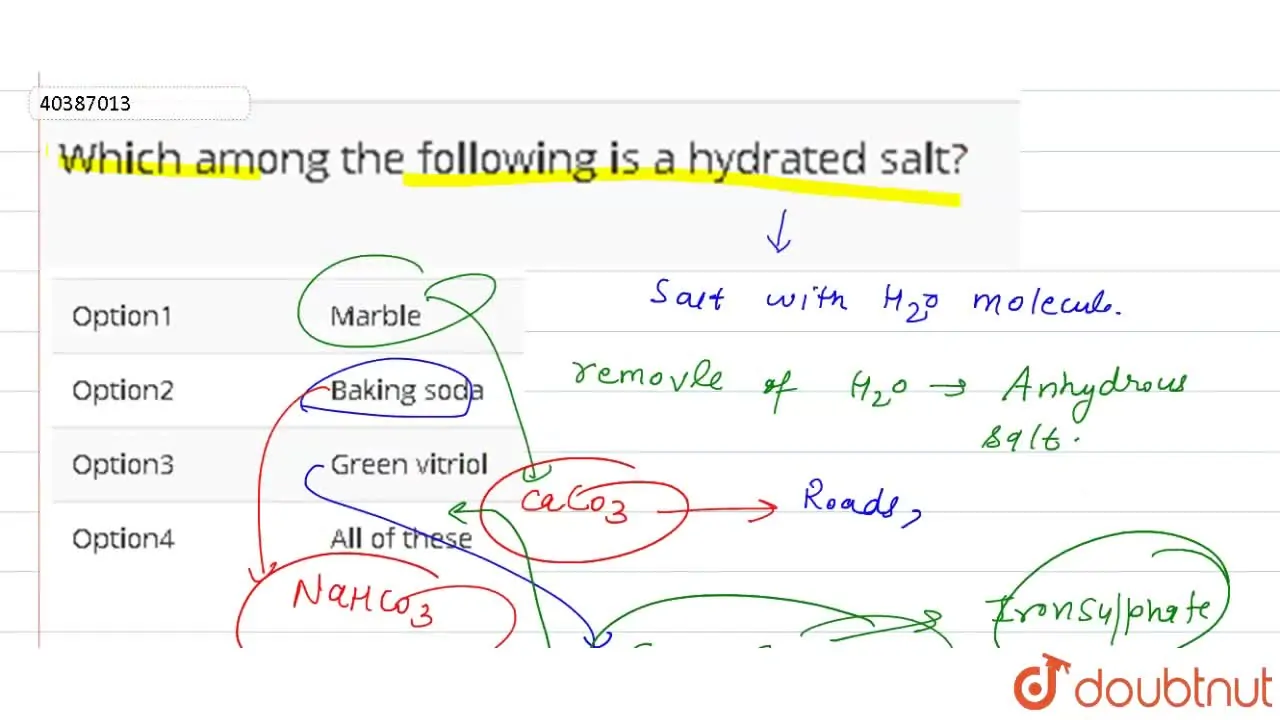 40387013
Which among the following is a hydrated salt?
Salt with H2O molecule.
Option1 Marble
removle of H2O → Anhydrous
salt.
Option2 Baking soda
Option3 Green vitriol
CaCO3 → Roads,
Option4 All of these
NaHCO3
Ironsulphate
doubtnut